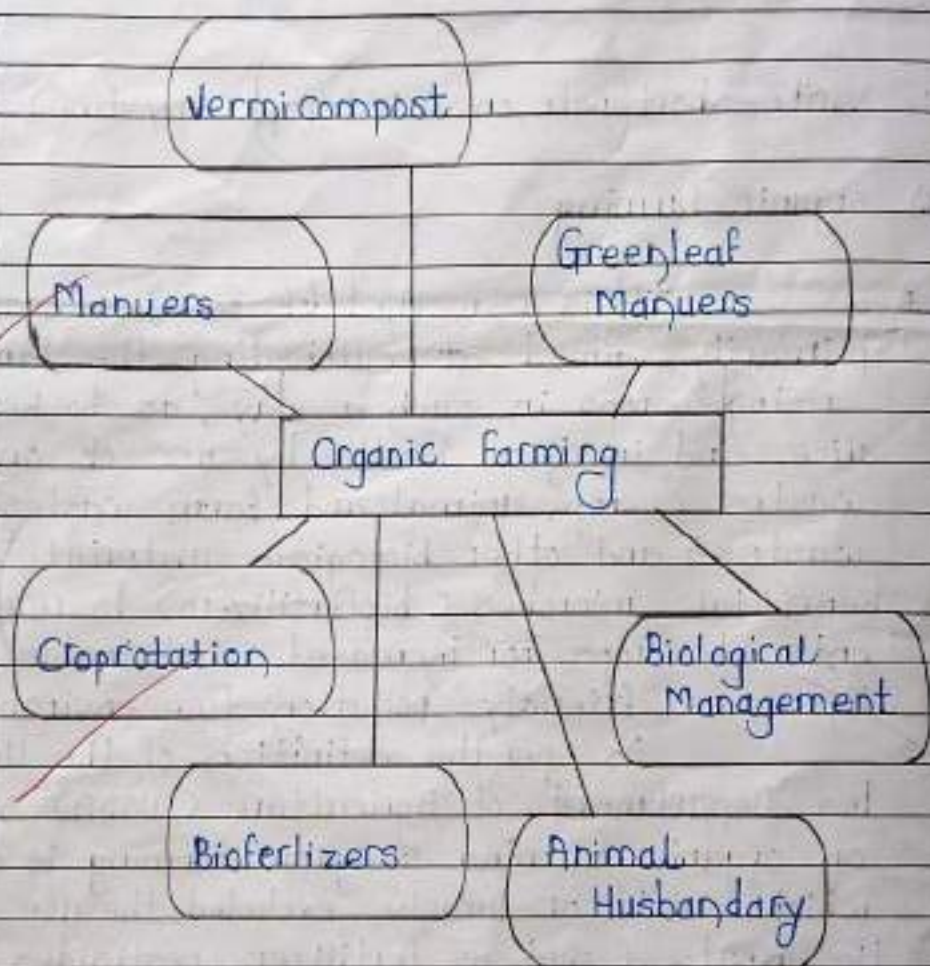 Vermicompost
Manuers
Greenleaf
Manuers
Organic farming
Croprotation
Biological
Management
Bioferlizers
Animal
Husbandary